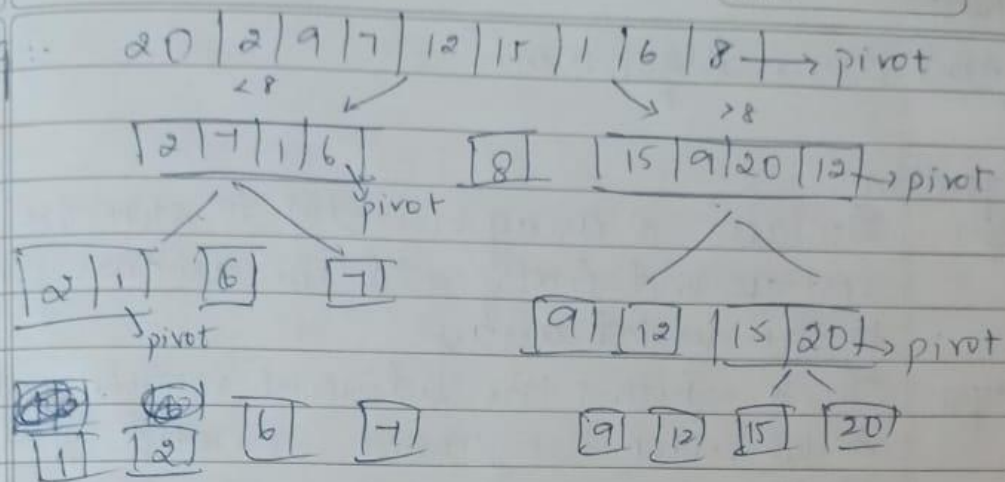 20 | 2 | 9 | 7 | 12 | 15 | 1 | 6 | 8 → pivot
< 8 > 8
2 | 7 | 1 | 6 8 15 | 9 | 20 | 12 → pivot
pivot
2 | 1 6 7 9 12 15 | 20 → pivot
pivot
1 2 6 7 9 12 15 20